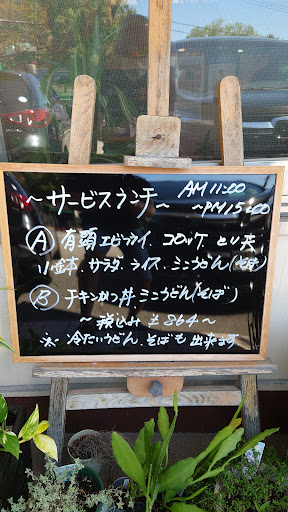 ～サービスランチ～ AM11:00
～PM15:00
Ⓐ 有頭エビフライ コロッケ とり天
小鉢. サラダ. ライス. ミニうどん(そば)
Ⓑ チキンカツ丼. ミニうどん(そば)
～税込み ¥864～
※ 冷たいうどん. そばも出来ます